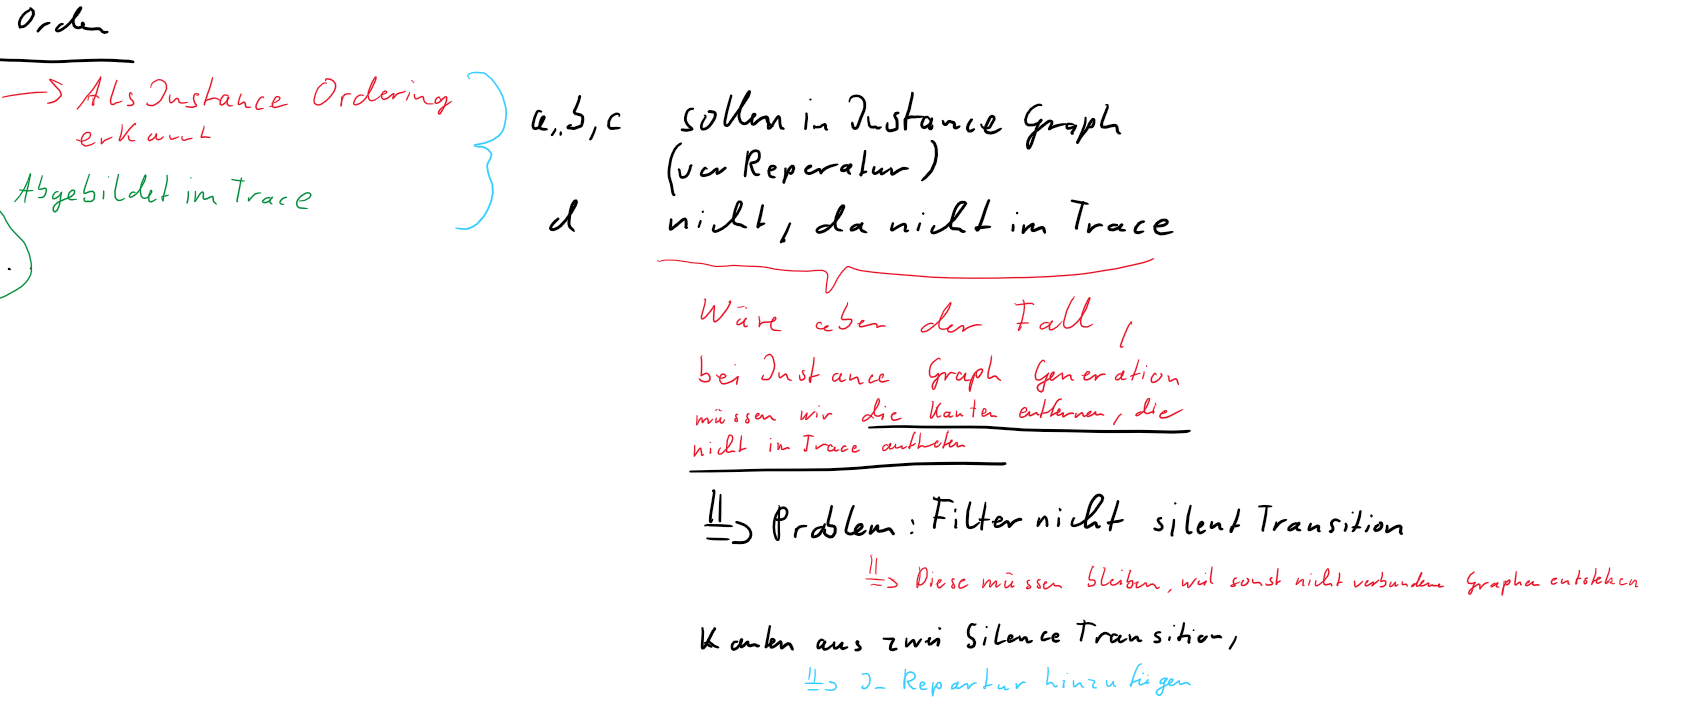 Orden
→ Als Instance Ordering
erkannt
Abgebildet im Trace
a,b,c sollen in Instance Graph
(vor Reperatur)
d nicht, da nicht im Trace
Wäre aber der Fall,
bei Instance Graph Generation
müssen wir die Kanten entfernen, die
nicht im Trace auftreten
⇒ Problem: Filter nicht silent Transition
⇒ Diese müssen bleiben, weil sonst nicht verbundene Graphen entstehen
Kanten aus zwei Silence Transition,
⇒ In Repartur hinzufügen